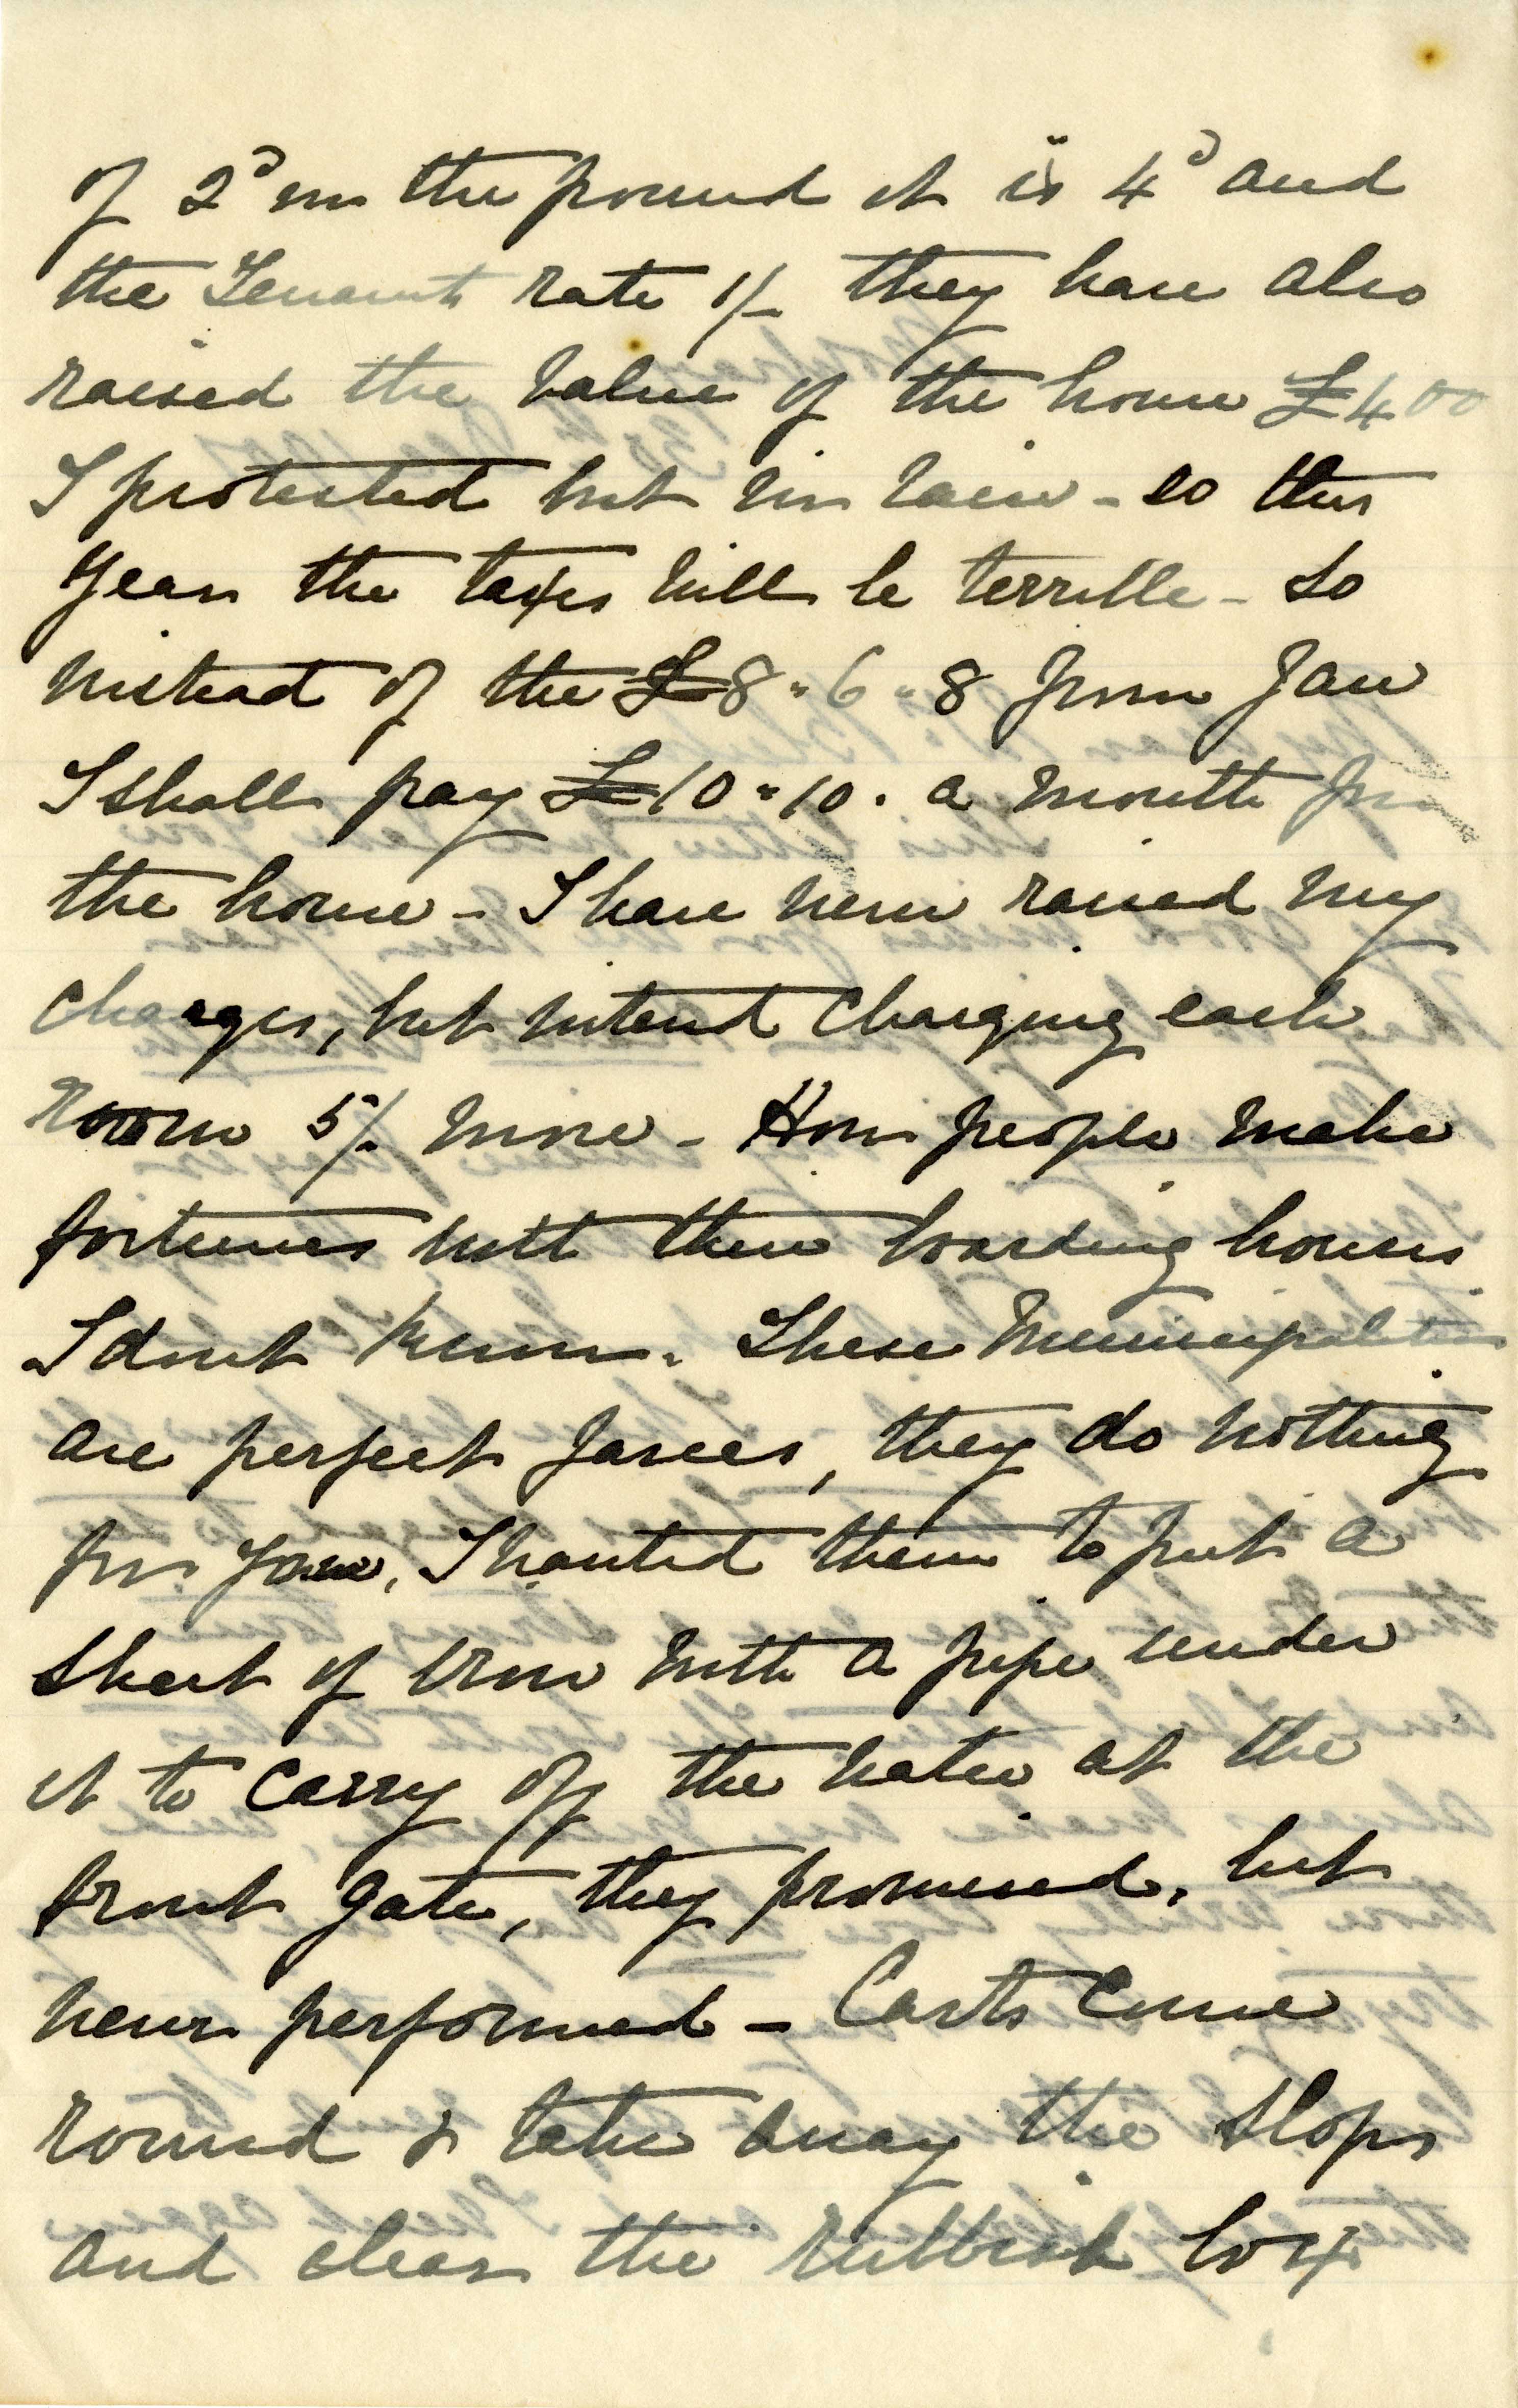 of 2ᵈ in the pound it is 4ᵈ and
the Tenants rate 1/- they have also
raised the value of the house £400
I protested but in vain - so this
year the taxes will be terrible - So
instead of the £8"6"8 from Jan
I shall pay £10"10. a month for
the house - I have never raised my
charges, but intend charging each
room 5/- more - How people make
fortunes with their boarding houses
I don't know. These Municipalities
are perfect farces, they do nothing
for you, I wanted them to put a
sheet of iron with a pipe under
it to carry off the water at the
front gate, they promised, but
never performed - Carts come
round & take away the slops
and clear the rubbish box